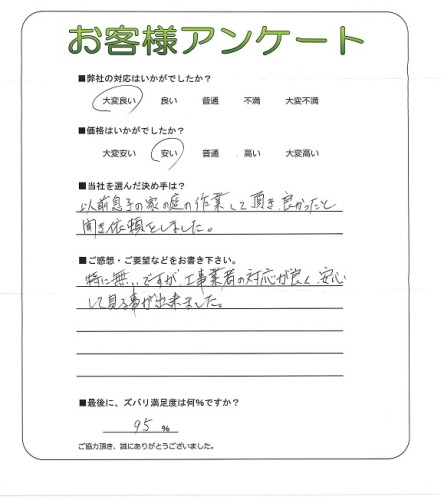 お客様アンケート
■弊社の対応はいかがでしたか？
大変良い 良い 普通 不満 大変不満
■価格はいかがでしたか？
大変安い 安い 普通 高い 大変高い
■当社を選んだ決め手は？
以前息子の家の庭の作業して頂き、良かったと
聞き依頼をしました。
■ご感想・ご要望などをお書き下さい。
特に無いですが工事業者の対応が良く、安心
して見る事が出来ました。
■最後に、ズバリ満足度は何％ですか？
95 ％
ご協力頂き、誠にありがとうございました。